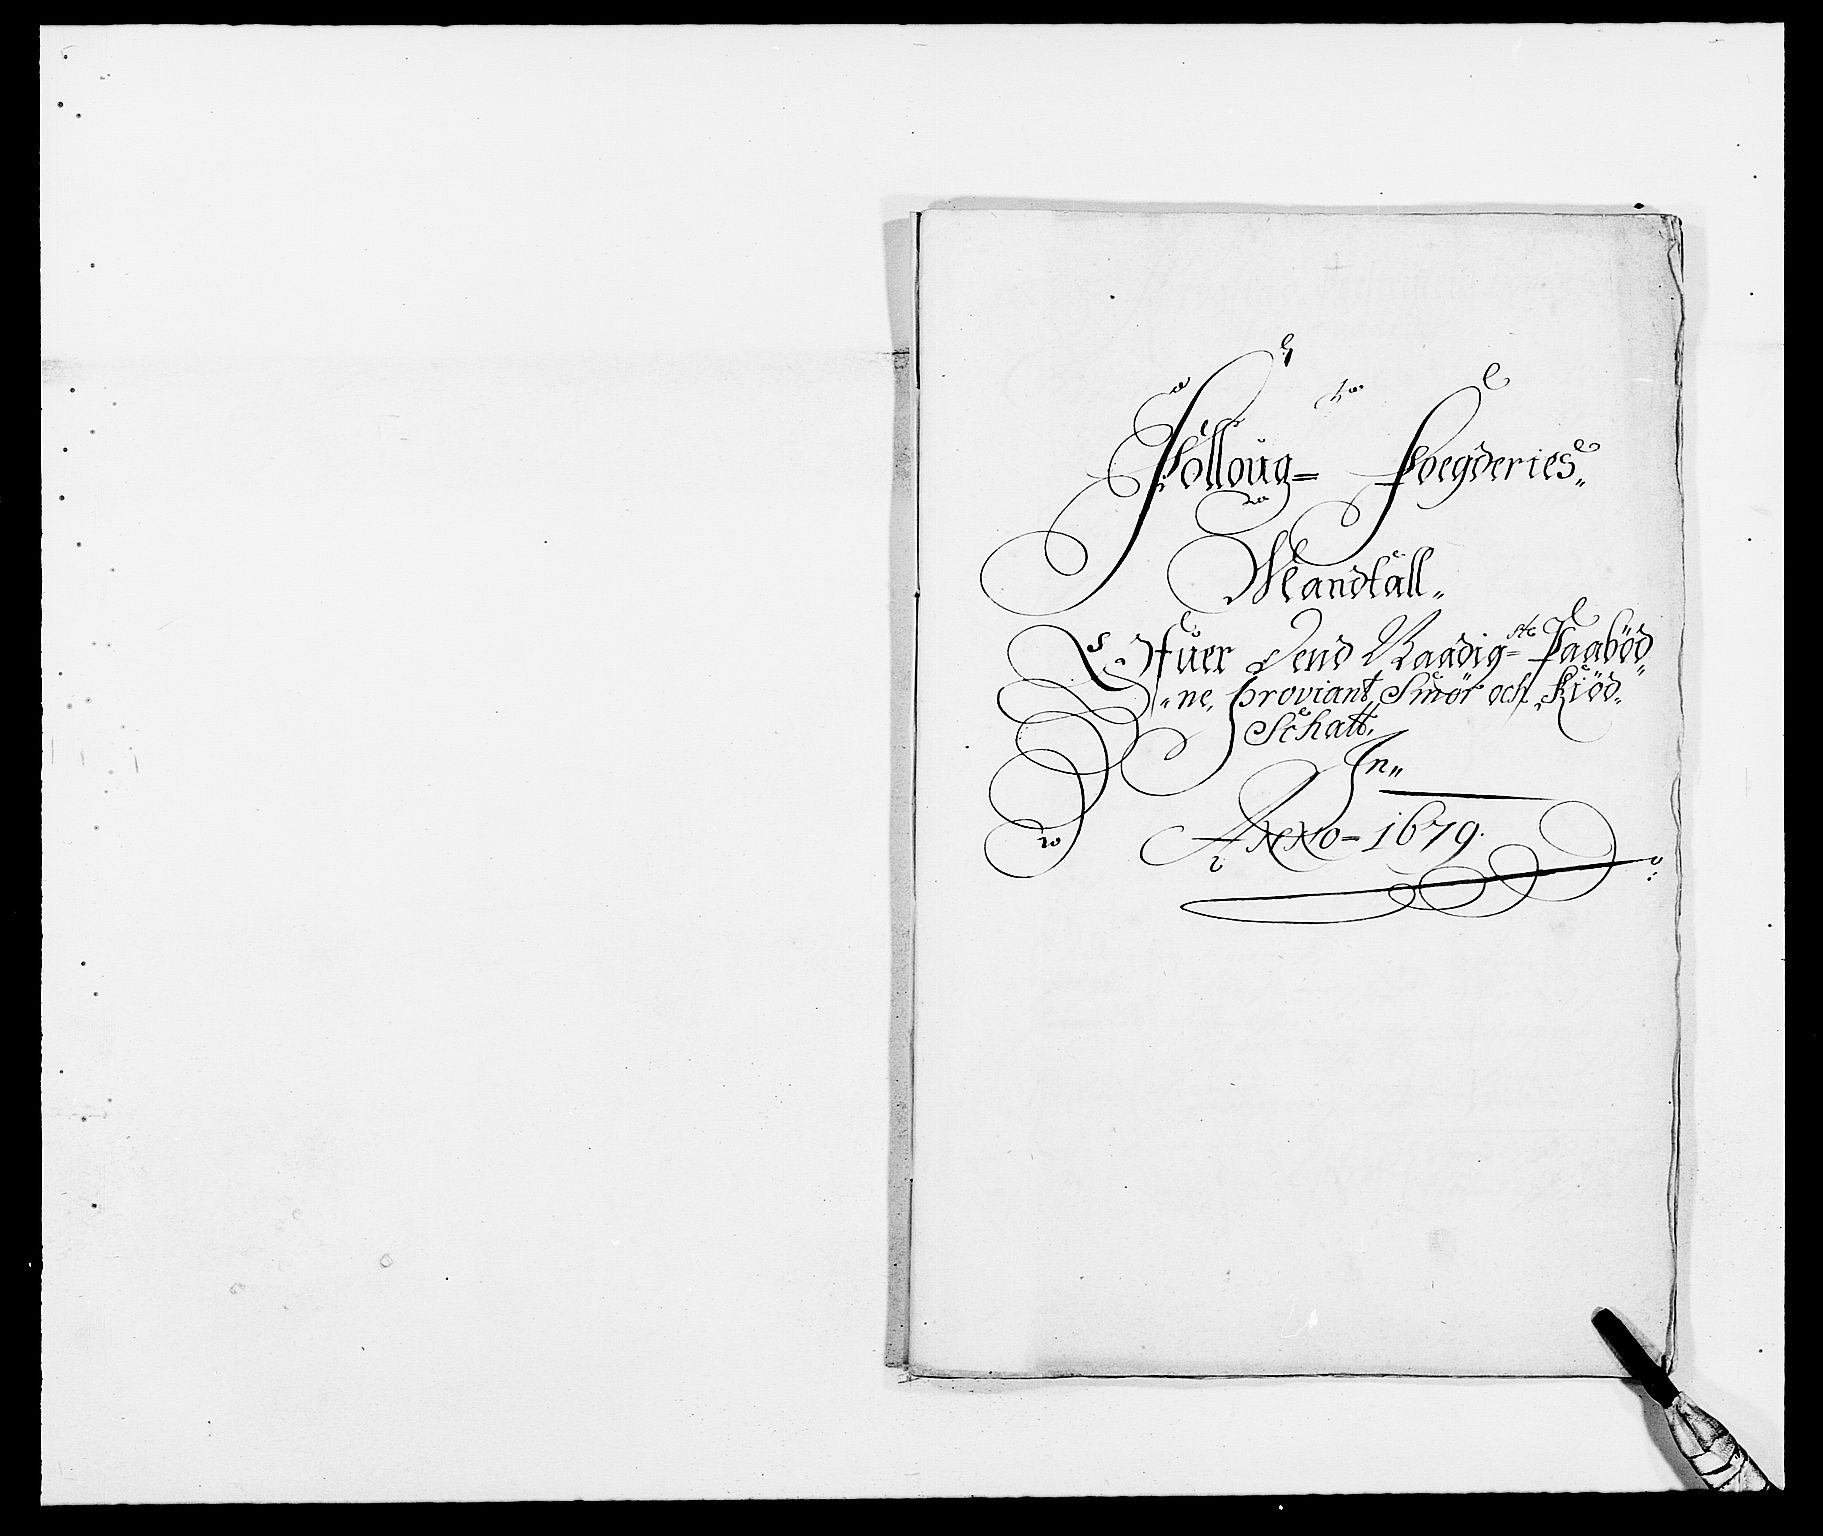 Folloug= Foegderies„
Mandtall„
Ofuer Dend Naadig=ste Paabød„
„ne, proviant, Smör och Kiöd„
Schatt.
In„
ANNO= 1679.